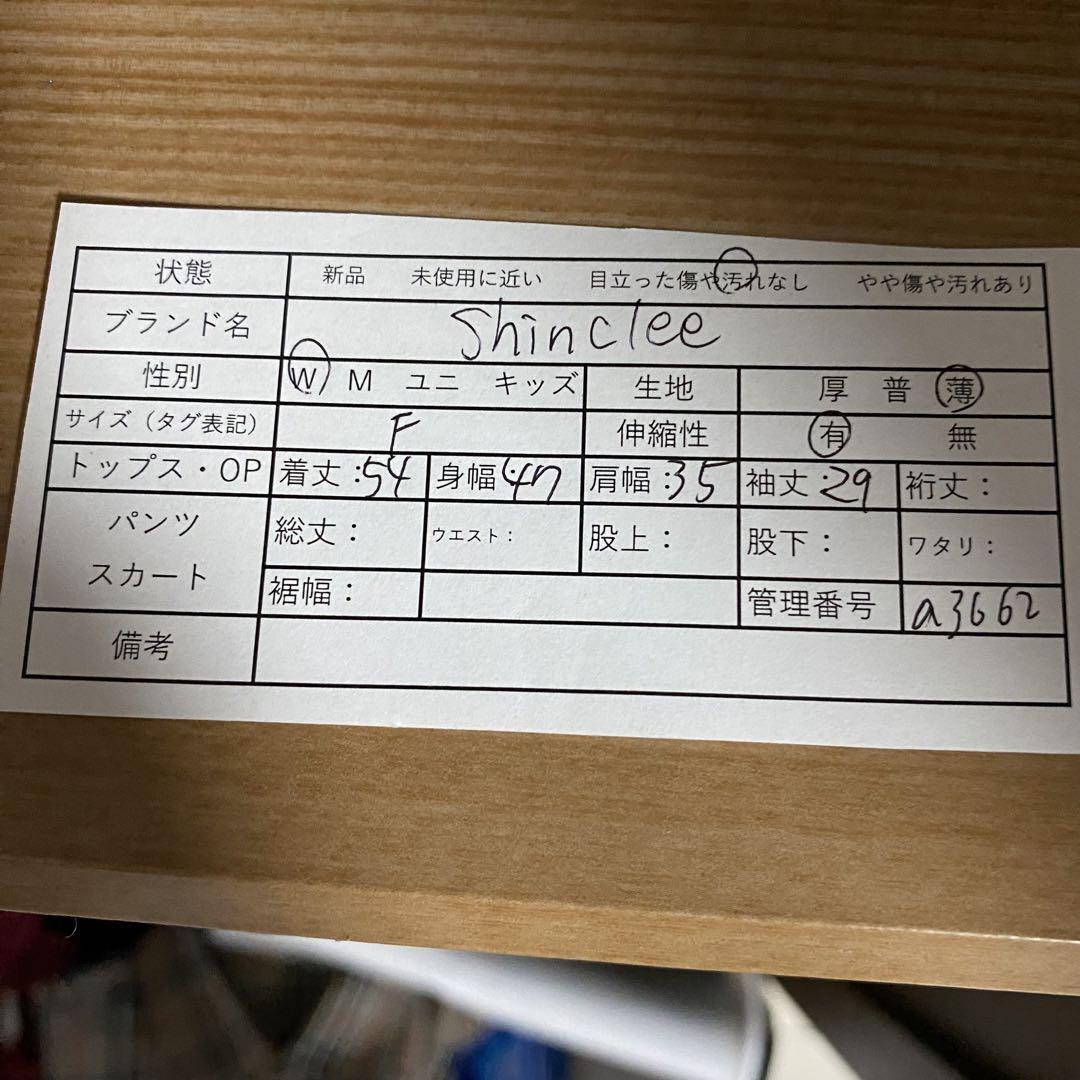 状態 新品 未使用に近い 目立った傷や汚れなし やや傷や汚れあり
ブランド名 Shinclee
性別 W M ユニ キッズ 生地 厚 普 薄
サイズ（タグ表記） F 伸縮性 有 無
トップス・OP 着丈：54 身幅：47 肩幅：35 袖丈：29 裄丈：
パンツ
スカート
総丈： ウエスト： 股上： 股下： ワタリ：
裾幅： 管理番号 a3662
備考